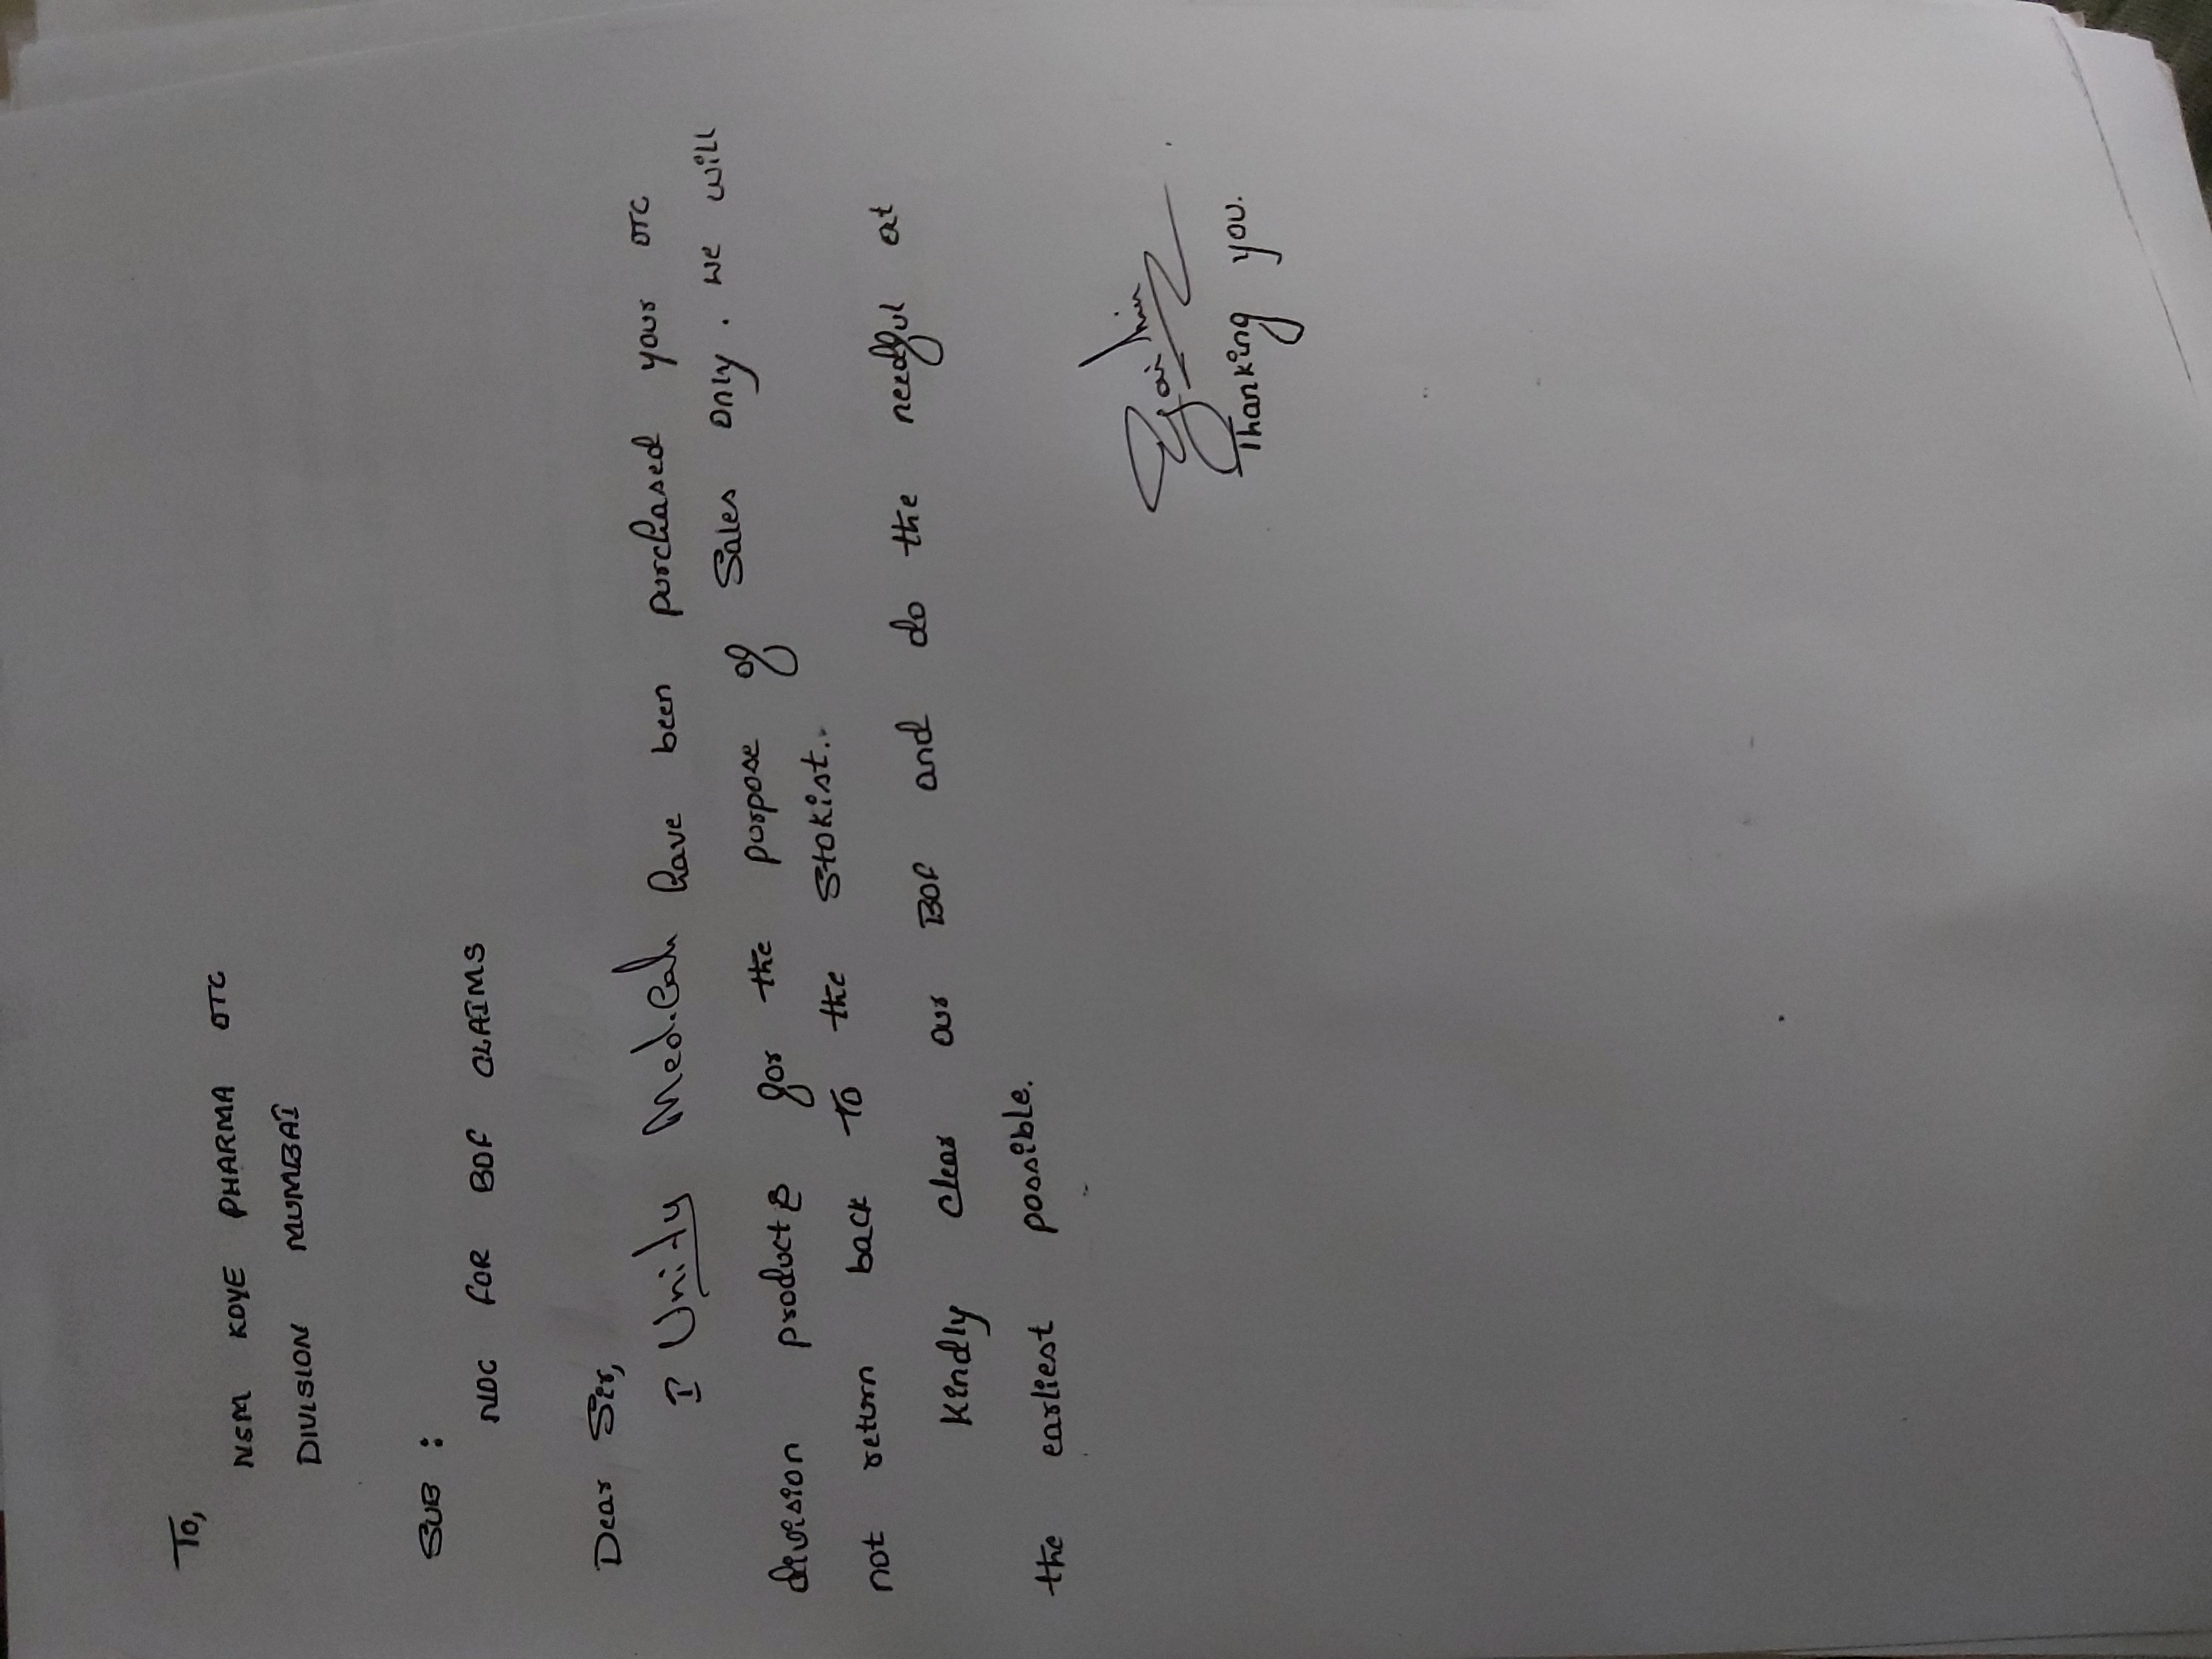 To,
NSM KOYE PHARMA OTC
DIVISION MUMBAI
SUB :
NOC FOR BDF CLAIMS
Dear Sir,
I Unity Medicals have been purchased your OTC
division products for the purpose of Sales only. we will
not return back To the Stokist..
Kindly clear our BDF and do the needful at
the earliest possible.
Thanking you.